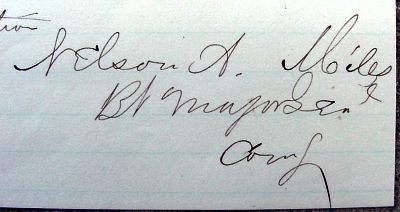 tion
Nelson A. Miles
Bt Major Genl
Comg